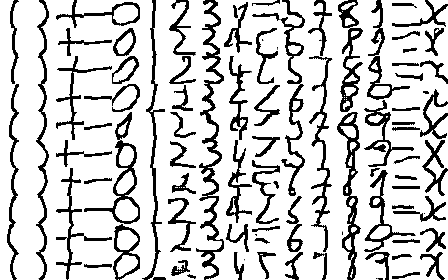 ()+-0123456789=x
()+-0123456789=x
()+-0123456789=x
()+-0123456789=x
()+-0123456789=x
()+-0123456789=x
()+-0123456789=x
()+-0123456789=x
()+-0123456789=x
()+-0123456789=x